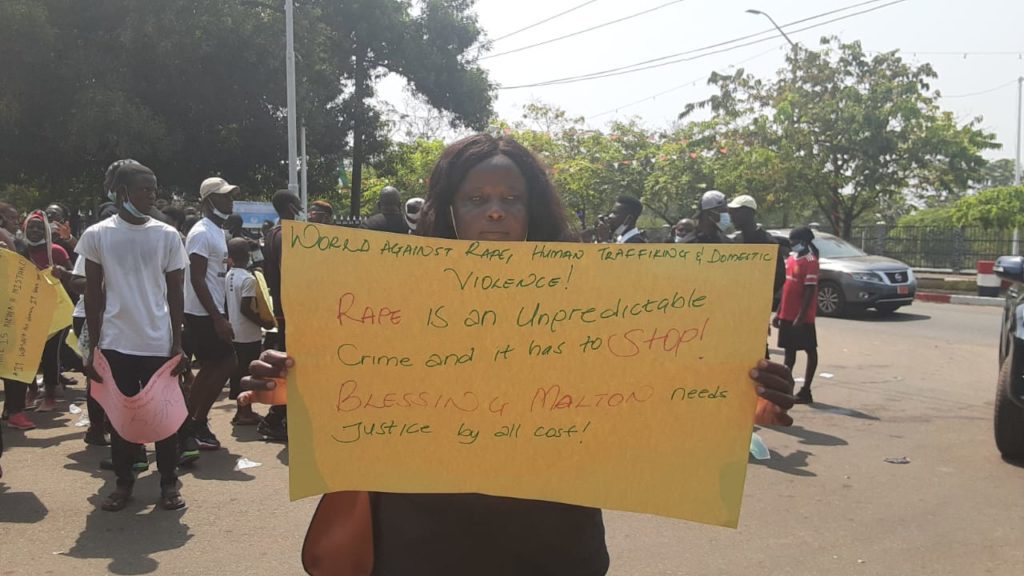 WORLD AGAINST RAPE, HUMAN TRAFFIKING & DOMESTIC
VIOLENCE!
RAPE is an Unpredictable
Crime and it has to STOP!
BLESSING MALTON needs
Justice by all cost!